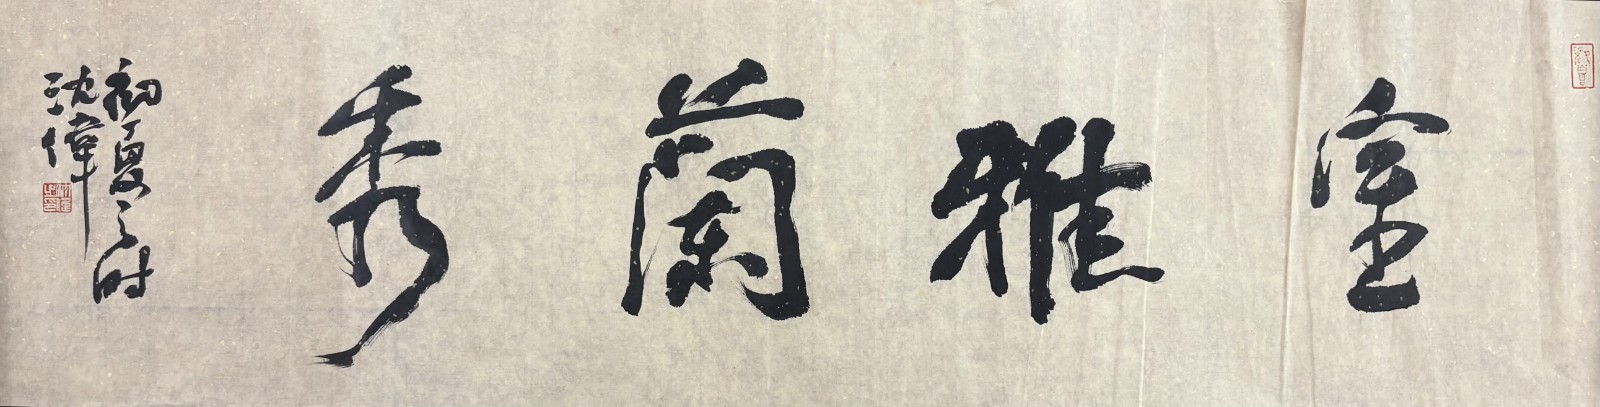 室雅蘭秀
初夏之時
沈偉